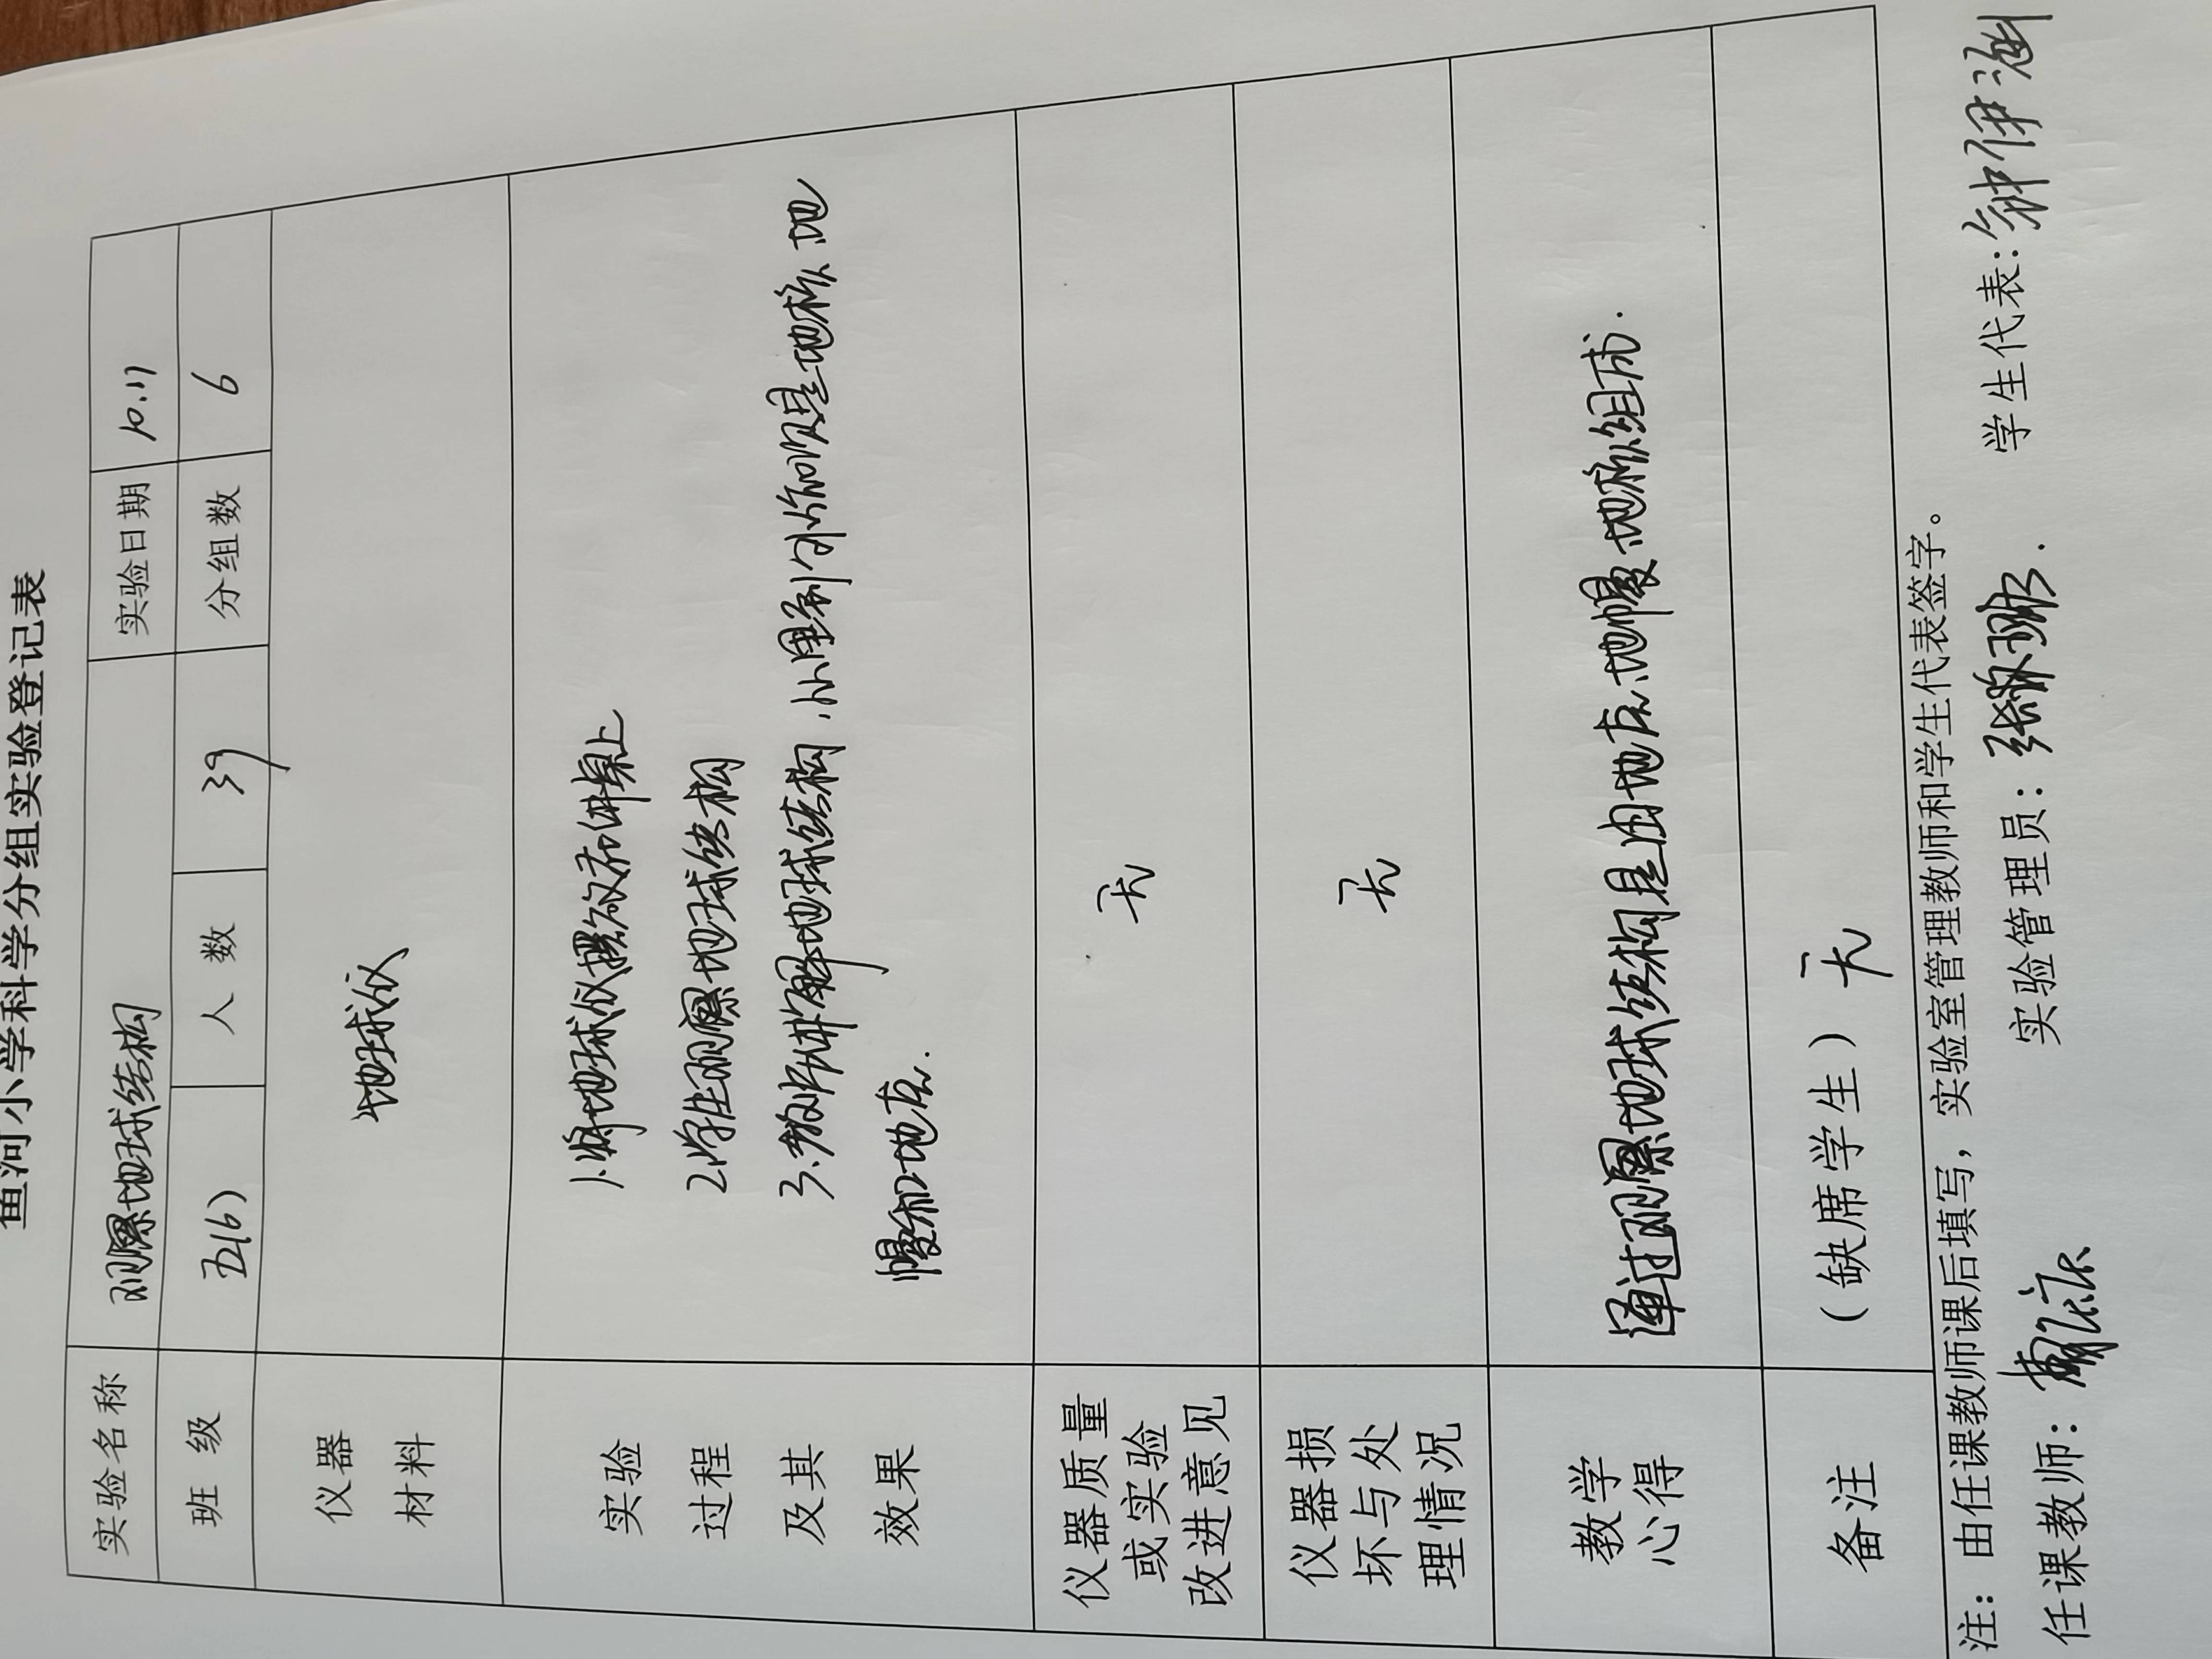 鱼河小学科学分组实验登记表
实验名称 观察地球结构 实验日期 10.11
班 级 五(6) 人 数 39 分组数 6
仪器
材料
地球仪
实验
过程
及其
效果
1.将地球仪摆放在讲桌上
2.学生观察地球结构
3.教师讲解地球结构,从里到外分别是地核、地
幔和地壳.
仪器质量
或实验
改进意见
无
仪器损
坏与处
理情况
无
教学
心得
通过观察地球结构是由地壳.地幔.地核组成.
备注 (缺席学生) 无
注:由任课教师课后填写,实验室管理教师和学生代表签字。
任课教师: 实验管理员: 学生代表: